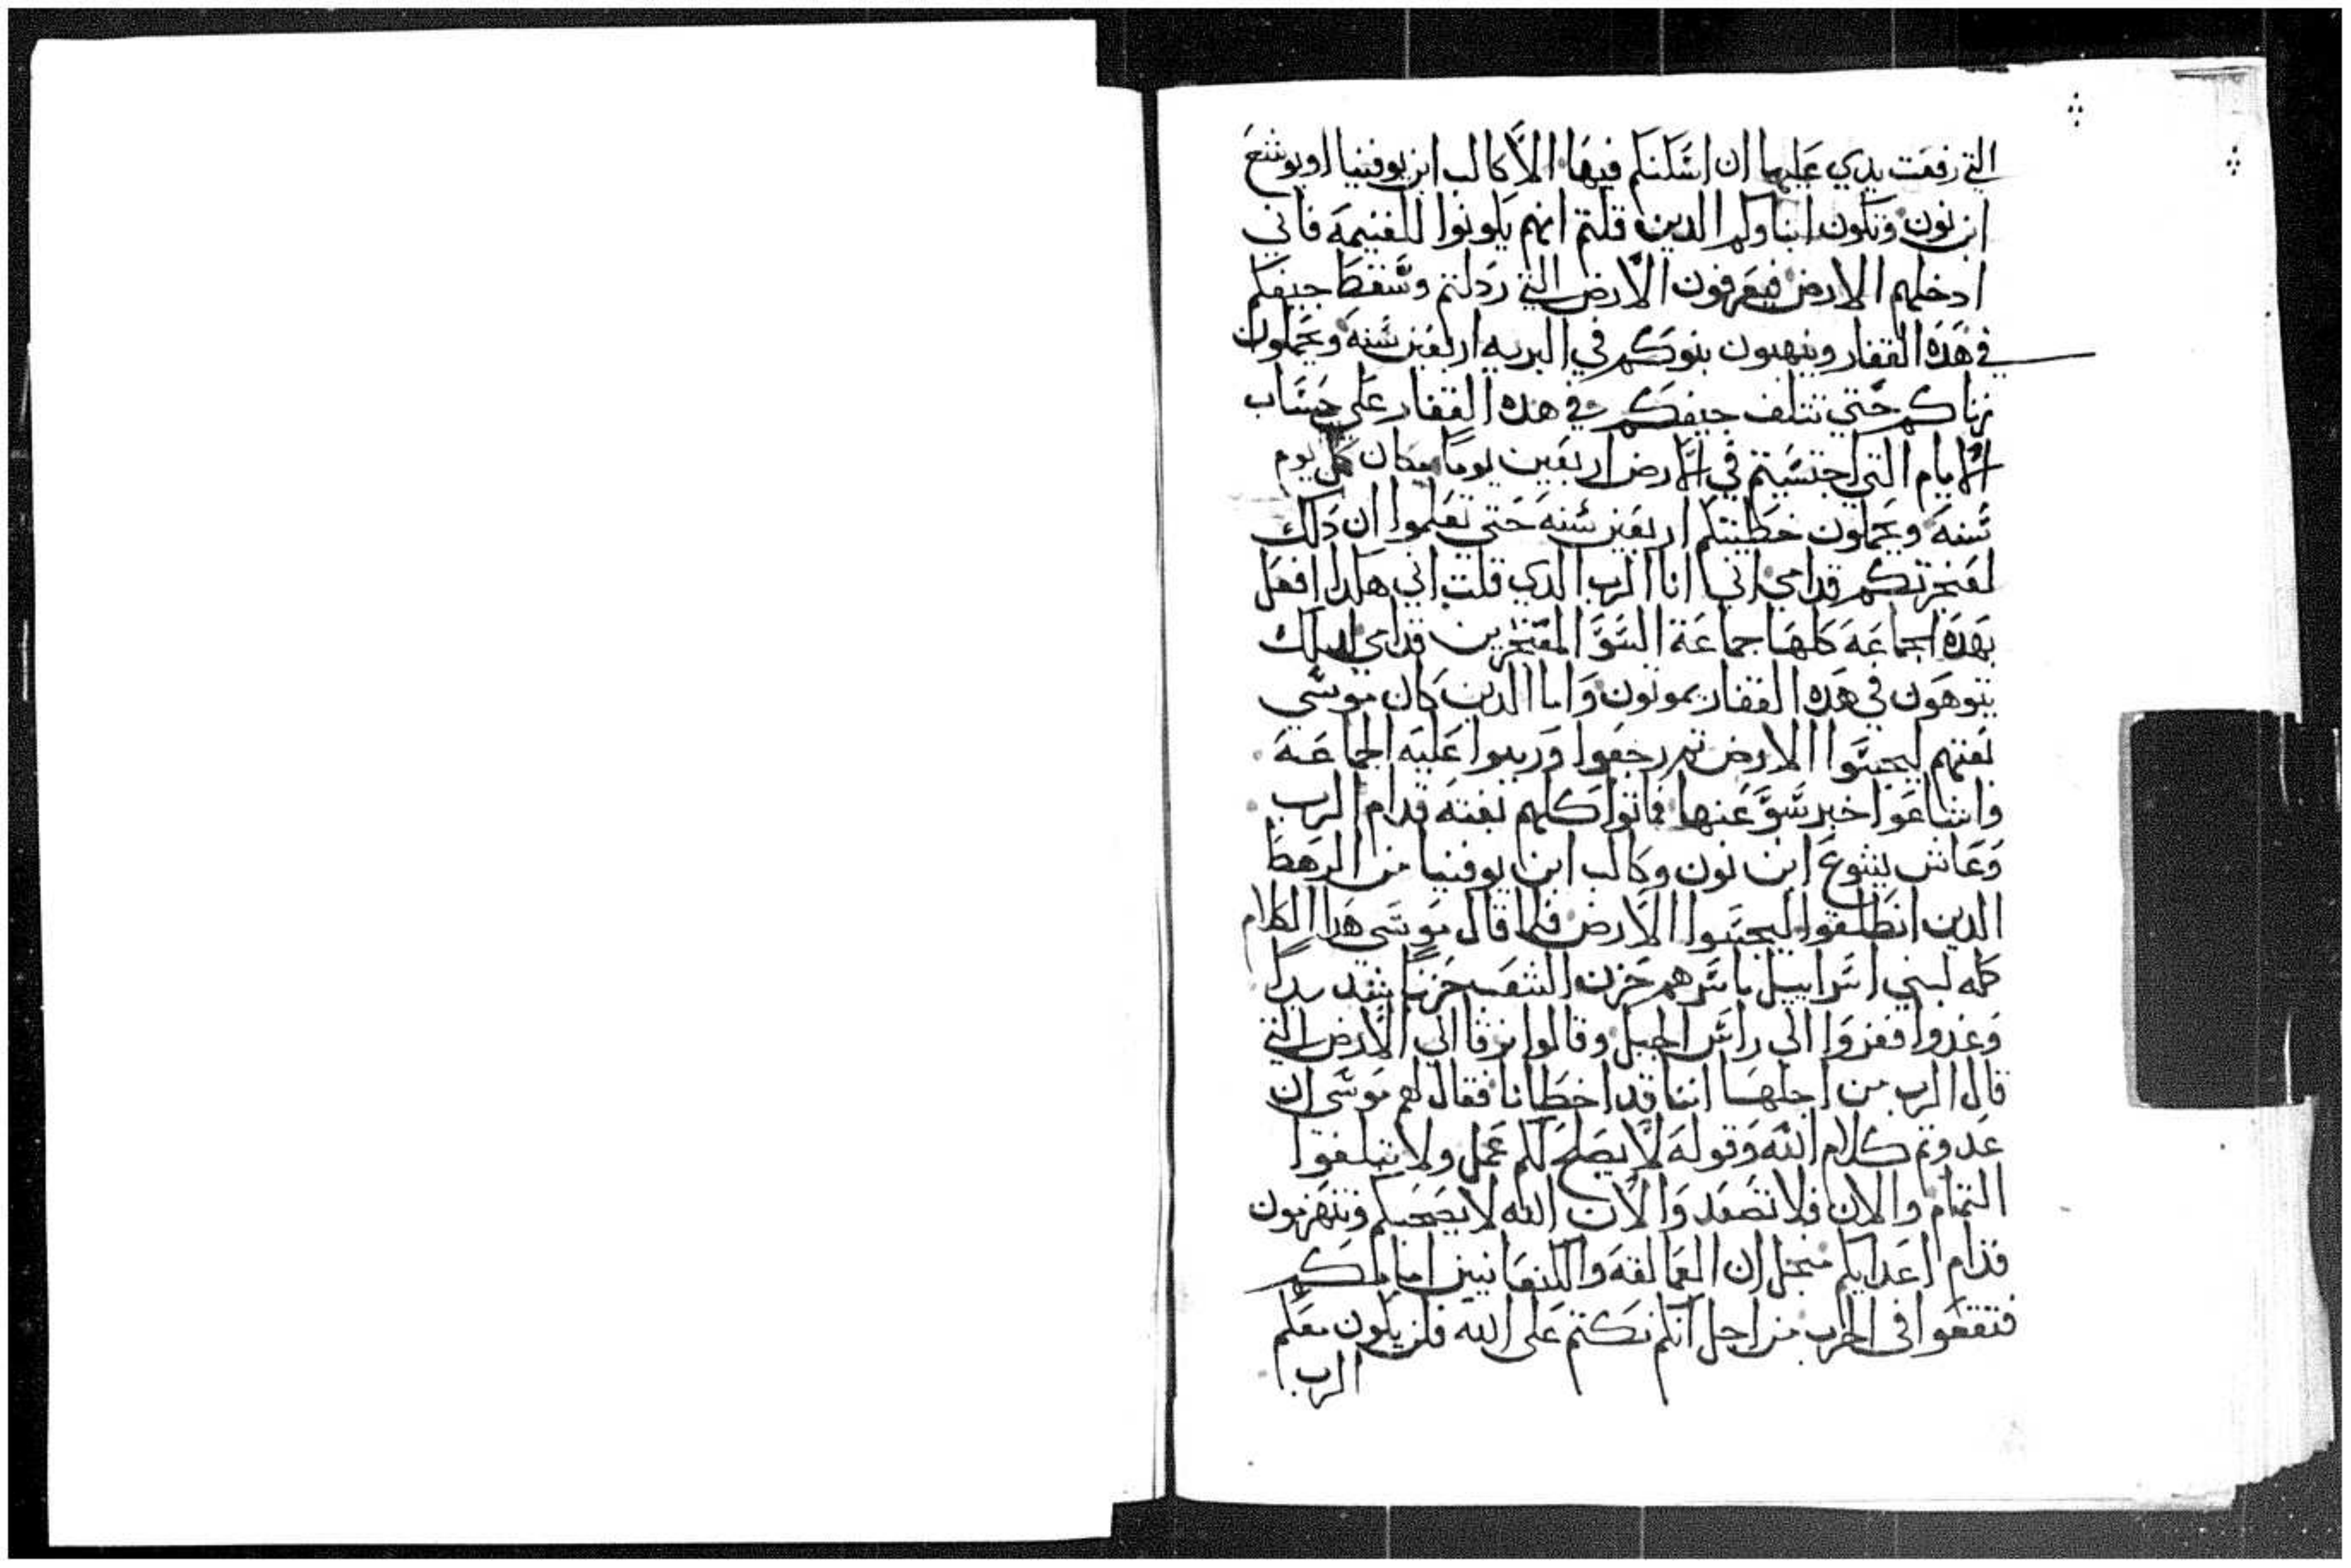 التي رفعت يدي عليها ان اسكنكم فيها الا كالب ابن يوفنيا او يوشع
ابن نون وتكون ابناوكم الدين قلتم انهم يكونوا للغنيمه فاني
ادخلهم الارض فيعرفون الارض التي ردلتم وسقط جيفكم
في هده القفار ويتهيون بنوكم في البريه اربعين سنه وتحملون
زناكم حتي تتلف جيفكم في هده القفار علي حساب
الايام التي اجتسيتم في الارض اربعين يوما مكان كل يوم
سنه وتحملون خطيتكم اربعين سنه حتي تعلموا ان دلك
لفنجرتكم قدامي اني انا الرب الدي قلت اني هكدا افعل
بهده الجماعه كلها جماعة السو المفنجرين قدامي
يتوهون في هده القفار يموتون واما الدين كان موسي
بعتهم ليجسوا الارض تم رجعوا وريبوا عليه الجماعه
واشاعوا خبر سو عنها فماتوا كلهم بغته قدام الرب
وعاش يشوع ابن نون وكالب ابن يوفنيا من الرهط
الدين انطلقوا ليجسوا الارض فلما قال موسي هدا الكلام
كله لبني اسراييل باسرهم حزن الشعب حزنا شديدا
وغدوا فغزوا الي راس الجبل وقالوا نرقا الي الارض التي
قال الرب من اجلها اننا قد اخطانا فقال لهم موسي ان
عدوتم كلام الله وقوله لا يصلح لكم عمل ولا تبلغوا
التمام والان فلا تصعد والان الله لا يصحبكم وتنهزمون
قدام اعدايكم منجل ان العمالقه والكنعانيين امامكم
فتقعوا في الحرب من اجل انكم نكتم علي الله فلن يكون معكم
الرب